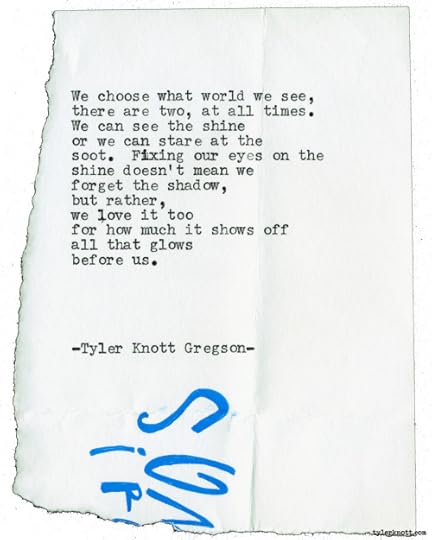 We choose what world we see,
there are two, at all times.
We can see the shine
or we can stare at the
soot.  Fixing our eyes on the
shine doesn't mean we
forget the shadow,
but rather,
we love it too
for how much it shows off
all that glows
before us.
-Tyler Knott Gregson-
tylerknott.com